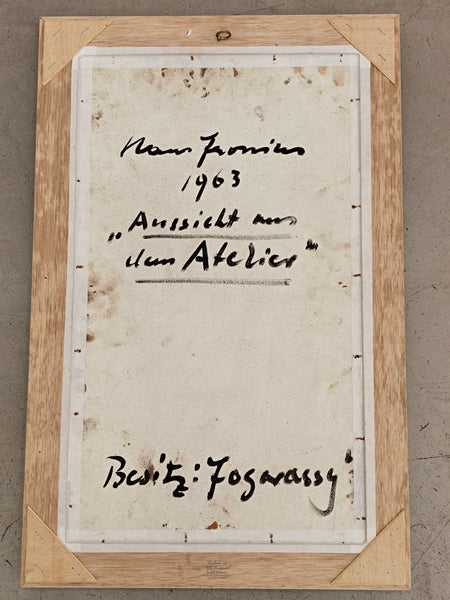 Hans Fronius
1963
„Aussicht aus
dem Atelier"
Besitz: Fogarassy